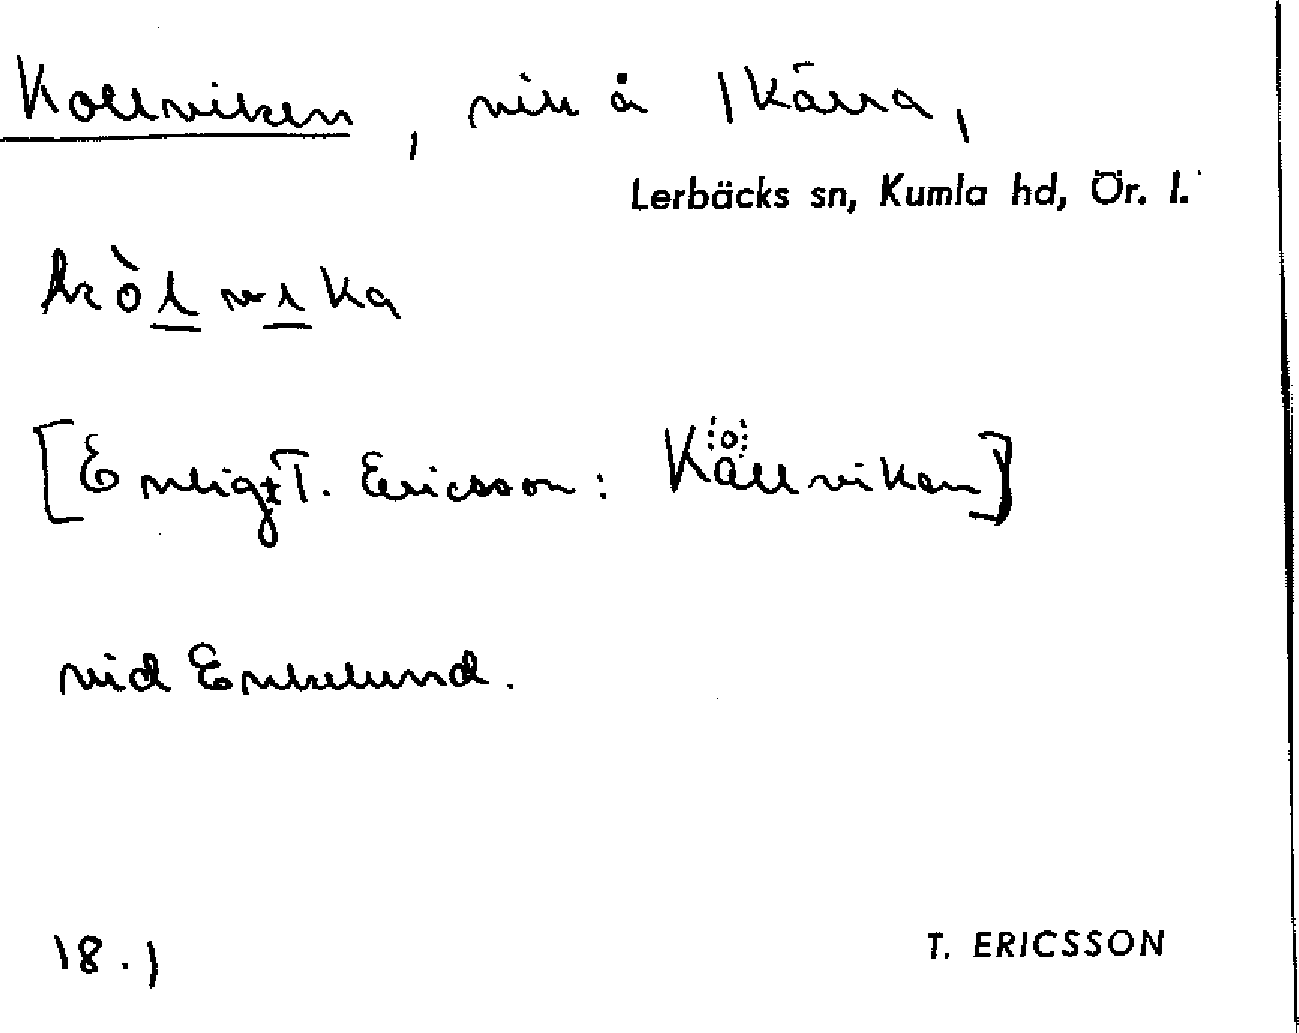 Kollviken, vik å 1 Kärra,
Lerbäcks sn, Kumla hd, Ör. l.
kòlvika
[Enligt T. Ericsson: Kållvikan]
vid Enkelund.
18.)
T. ERICSSON